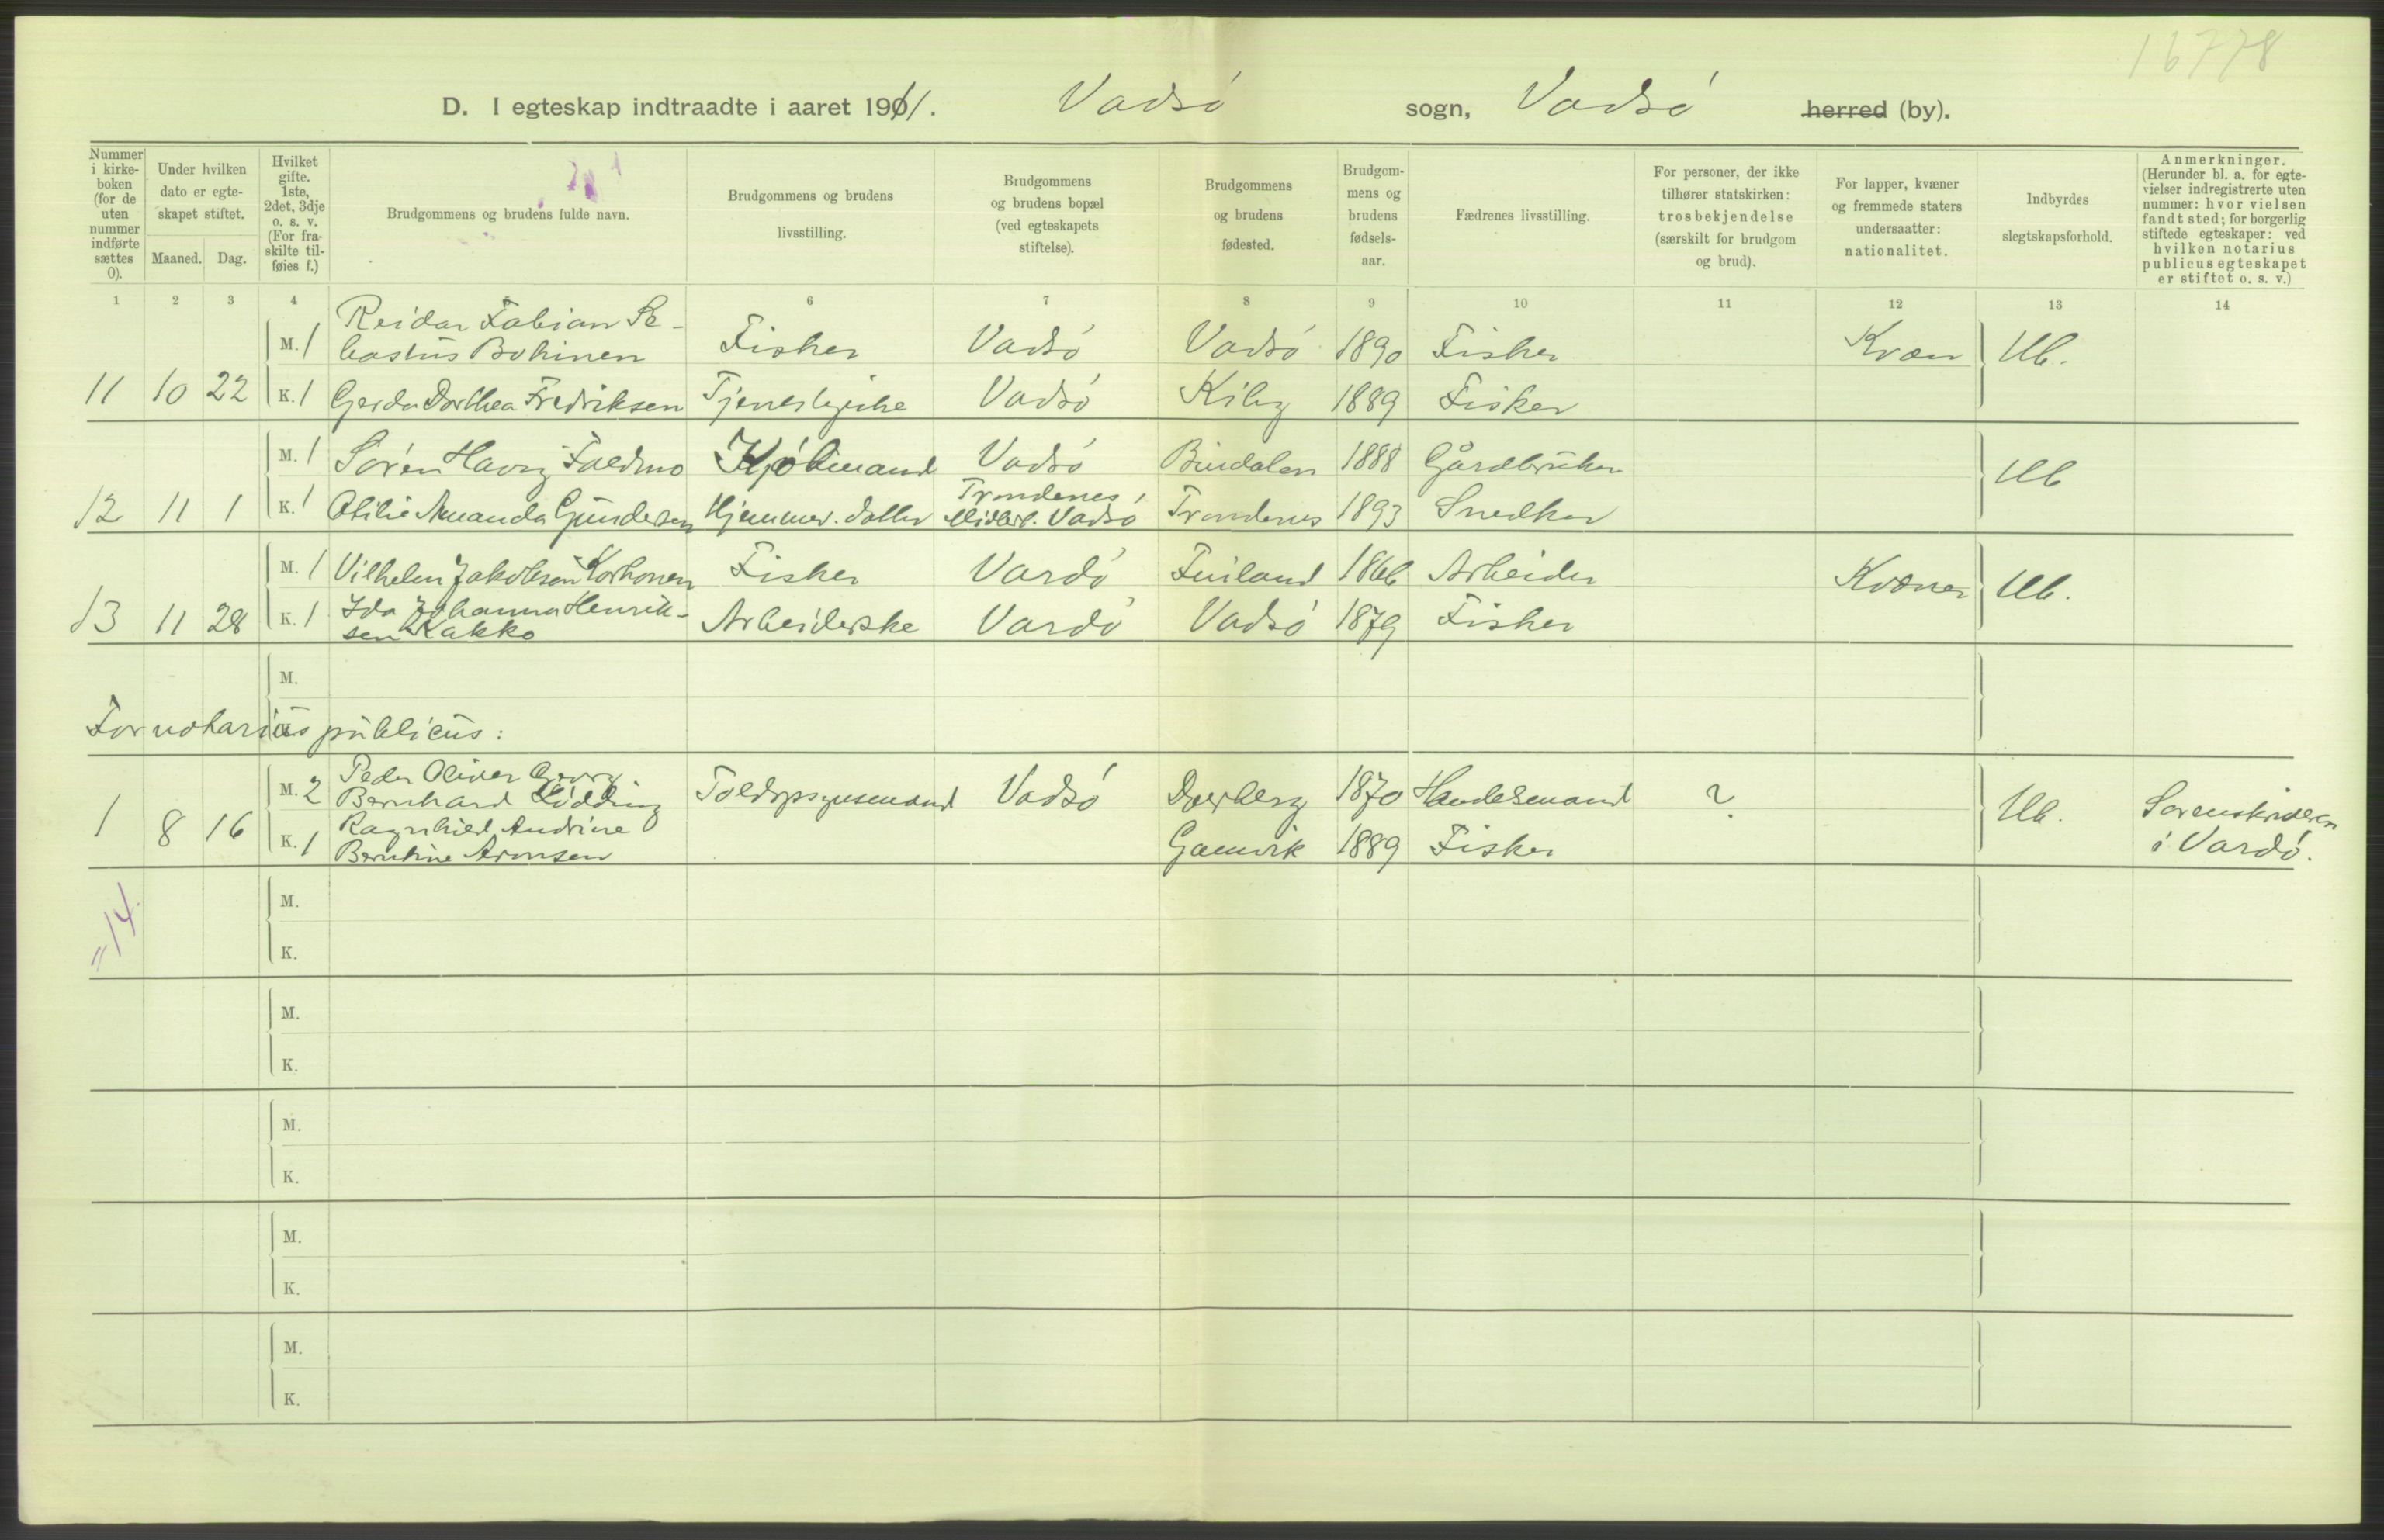 16778
D. I egteskap indtraadte i aaret 1911. Vadsö sogn, Vadsö herred (by).
Nummer i kirkeboken (for de uten nummer indførte sættes 0).
Under hvilken dato er egteskapet stiftet.
Maaned. Dag.
Hvilket gifte. 1ste, 2det, 3dje o. s. v. (For fraskilte tilføies f.)
Brudgommens og brudens fulde navn.
Brudgommens og brudens livsstilling.
Brudgommens og brudens bopæl (ved egteskapets stiftelse).
Brudgommens og brudens fødested.
Brudgommens og brudens fødselsaar.
Fædrenes livsstilling.
For personer, der ikke tilhører statskirken: trosbekjendelse (særskilt for brudgom og brud).
For lapper, kvæner og fremmede staters undersaatter: nationalitet.
Indbyrdes slegtskapsforhold.
Anmerkninger. (Herunder bl. a. for egtevielser indregistrerte uten nummer: hvor vielsen fandt sted; for borgerlig stiftede egteskaper: ved hvilken notarius publicus egteskapet er stiftet o. s. v.)
1 2 3 4 6 7 8 9 10 11 12 13 14
M. 1 Reidar Fabian Se-
bastus Bohinen Fisker Vadsö Vadsö 1890 Fisker Kvæn Ub.
11 10 22 K. 1 Gerda Dorthea Fredriksen Tjenestepike Vadsö Kiby 1889 Fisker
M. 1 Sören Havig Faldmo Kjöbmand Vadsö Bindalen 1888 Gårdbruker Ub
12 11 1 K. 1 Otilie Amanda Gundersen Hjemmev. datter Trondenes, Midlert. Vadsö Trondenes 1893 Snedker
M. 1 Vilhelm Jakobsen Korhonen Fisker Vardö Finland 1866 Arbeider Kvæner Ub.
13 11 28 K. 1 Ida Johanna Henrik-
sen Kakko Arbeiderske Vardö Vadsö 1879 Fisker
M.
For notarius publicus:
M. 2 Peder Oliver Georg
Bernhard Lödding Toldopsynsmand Vadsö 1870 Handelsmand ? Ub. Sorenskriveren
1 8 16 K. 1 Ragnhild Andrine
Berntine Aronsen Gamvik 1889 Fisker i Vardö.
" 14
M.
K.
M.
K.
M.
K.
M.
K.
M.
K.